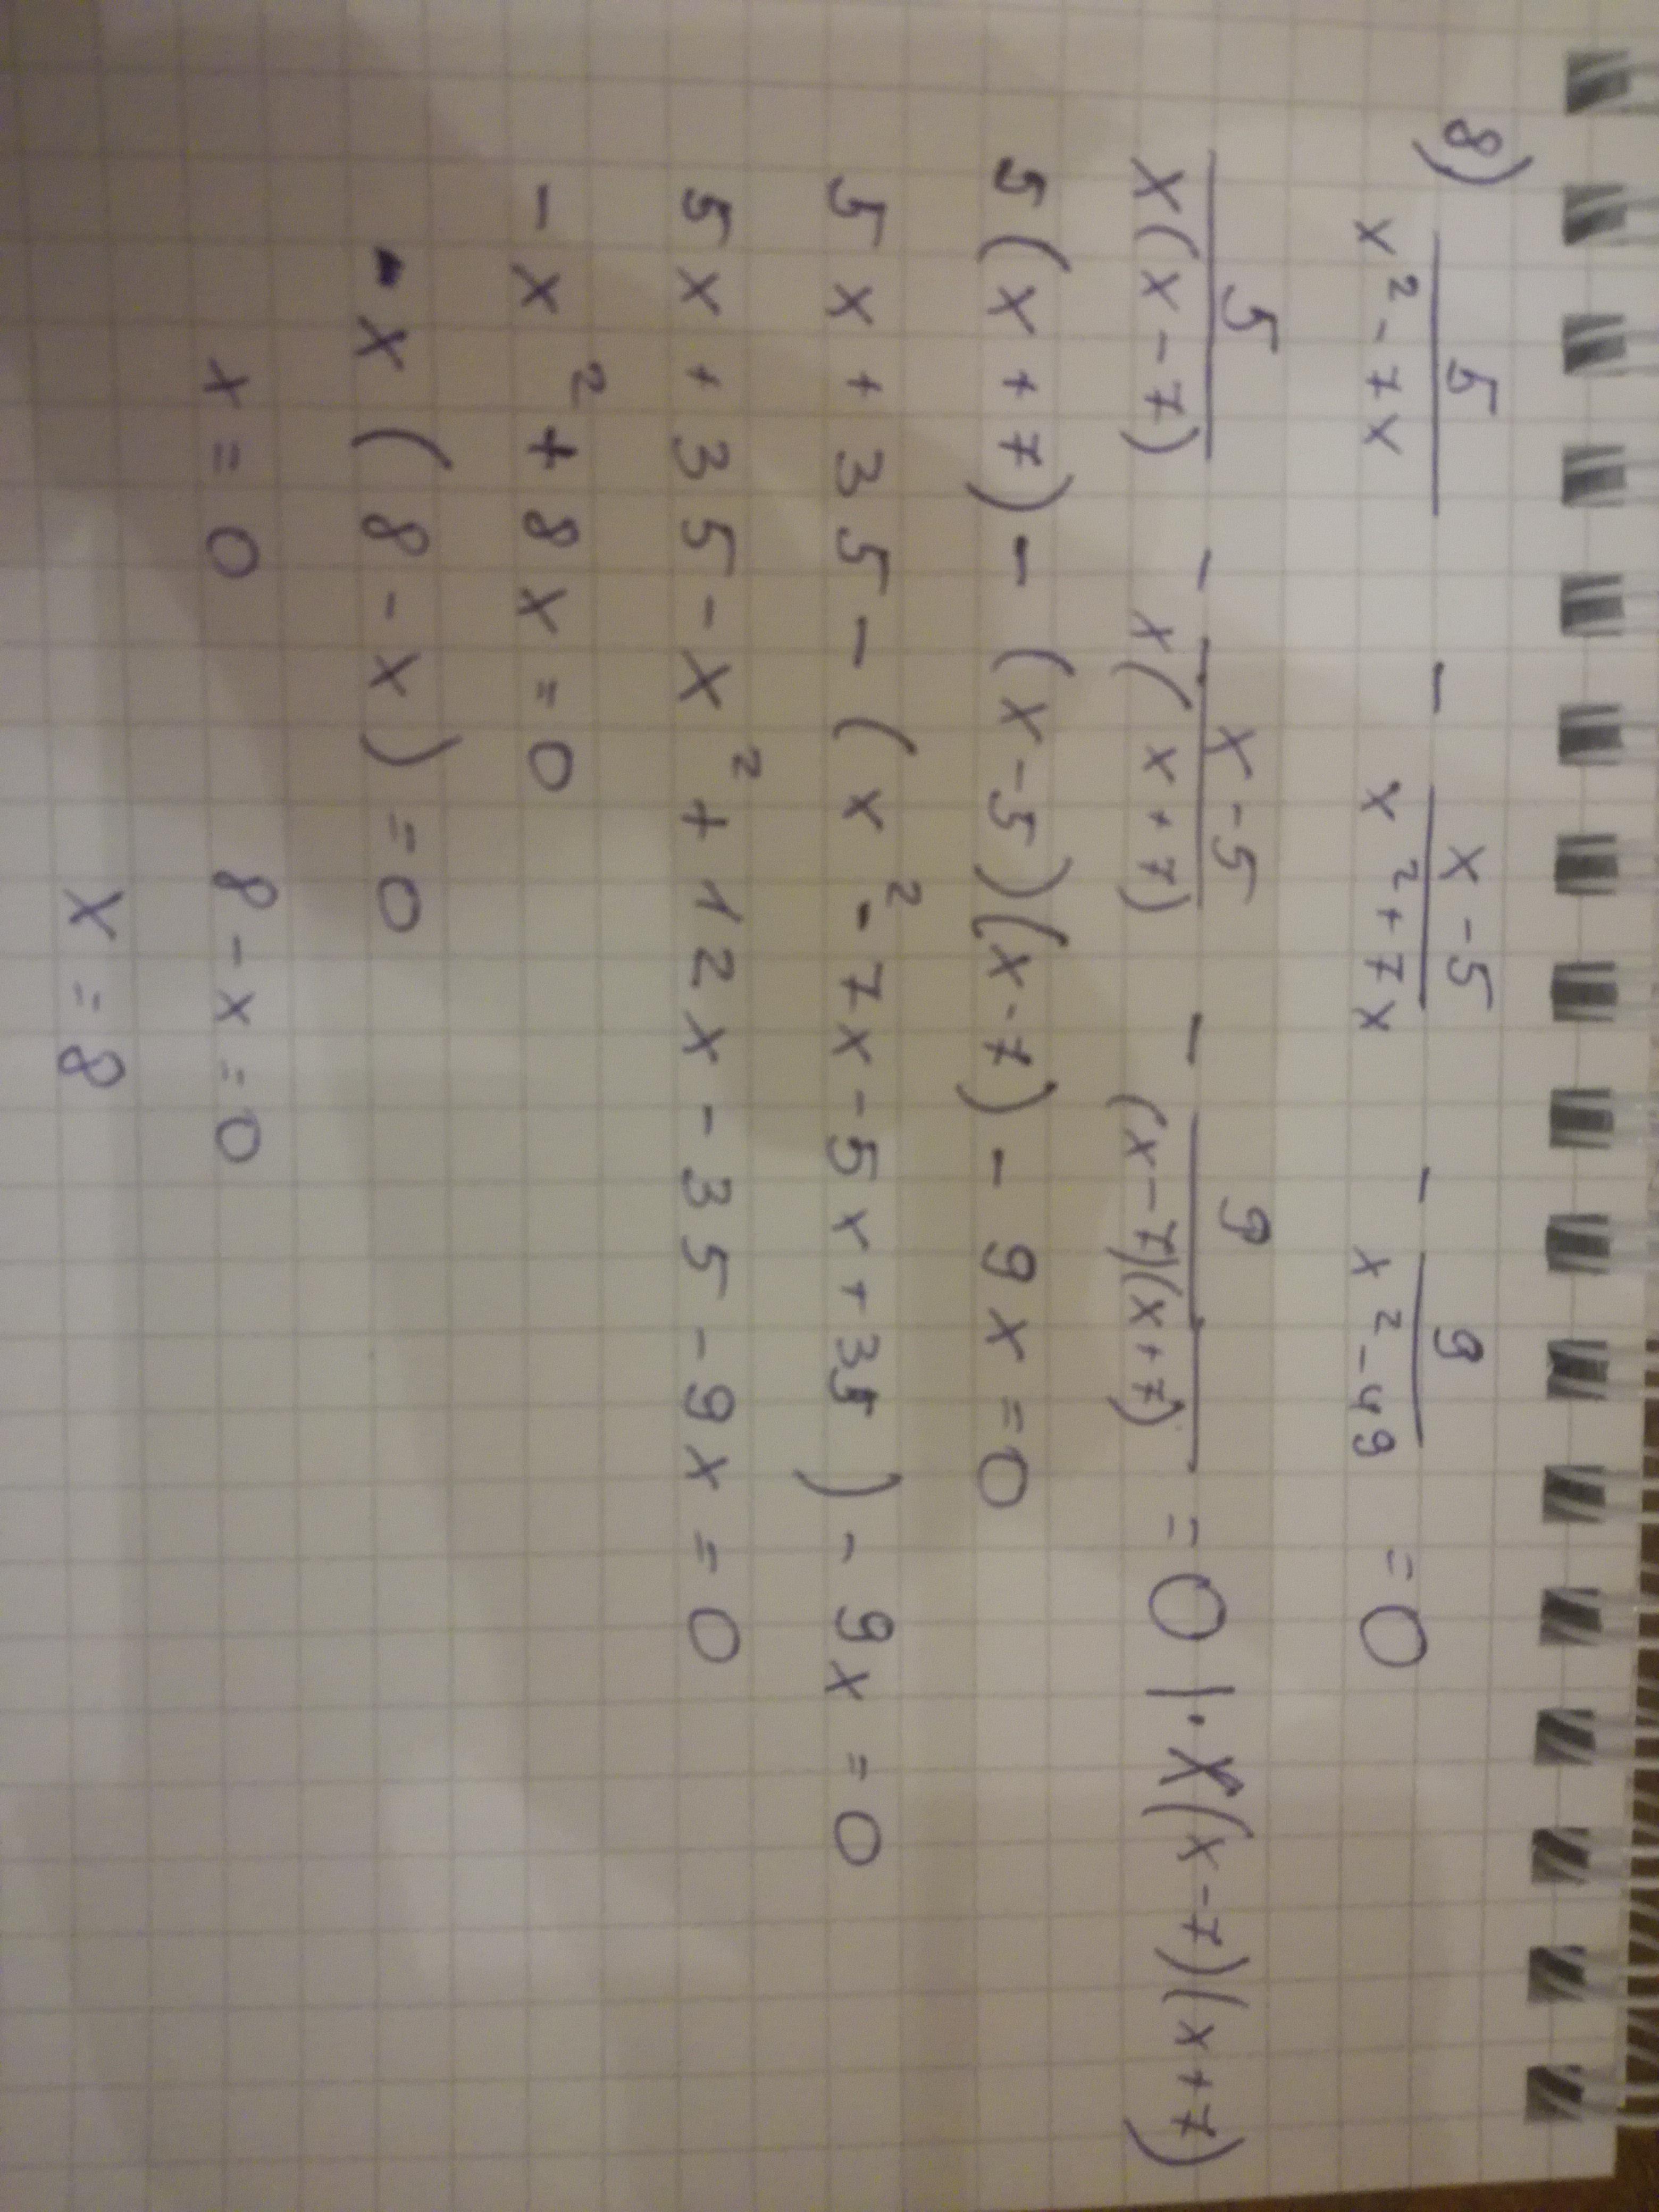 8) 5/(x² - 7x) - (x - 5)/(x² + 7x) - 9/(x² - 49) = 0
5/(x(x - 7)) - (x - 5)/(x(x + 7)) - 9/((x - 7)(x + 7)) = 0 | · x(x - 7)(x + 7)
5(x + 7) - (x - 5)(x - 7) - 9x = 0
5x + 35 - (x² - 7x - 5x + 35) - 9x = 0
5x + 35 - x² + 12x - 35 - 9x = 0
- x² + 8x = 0
x(8 - x) = 0
x = 0 8 - x = 0
x = 8